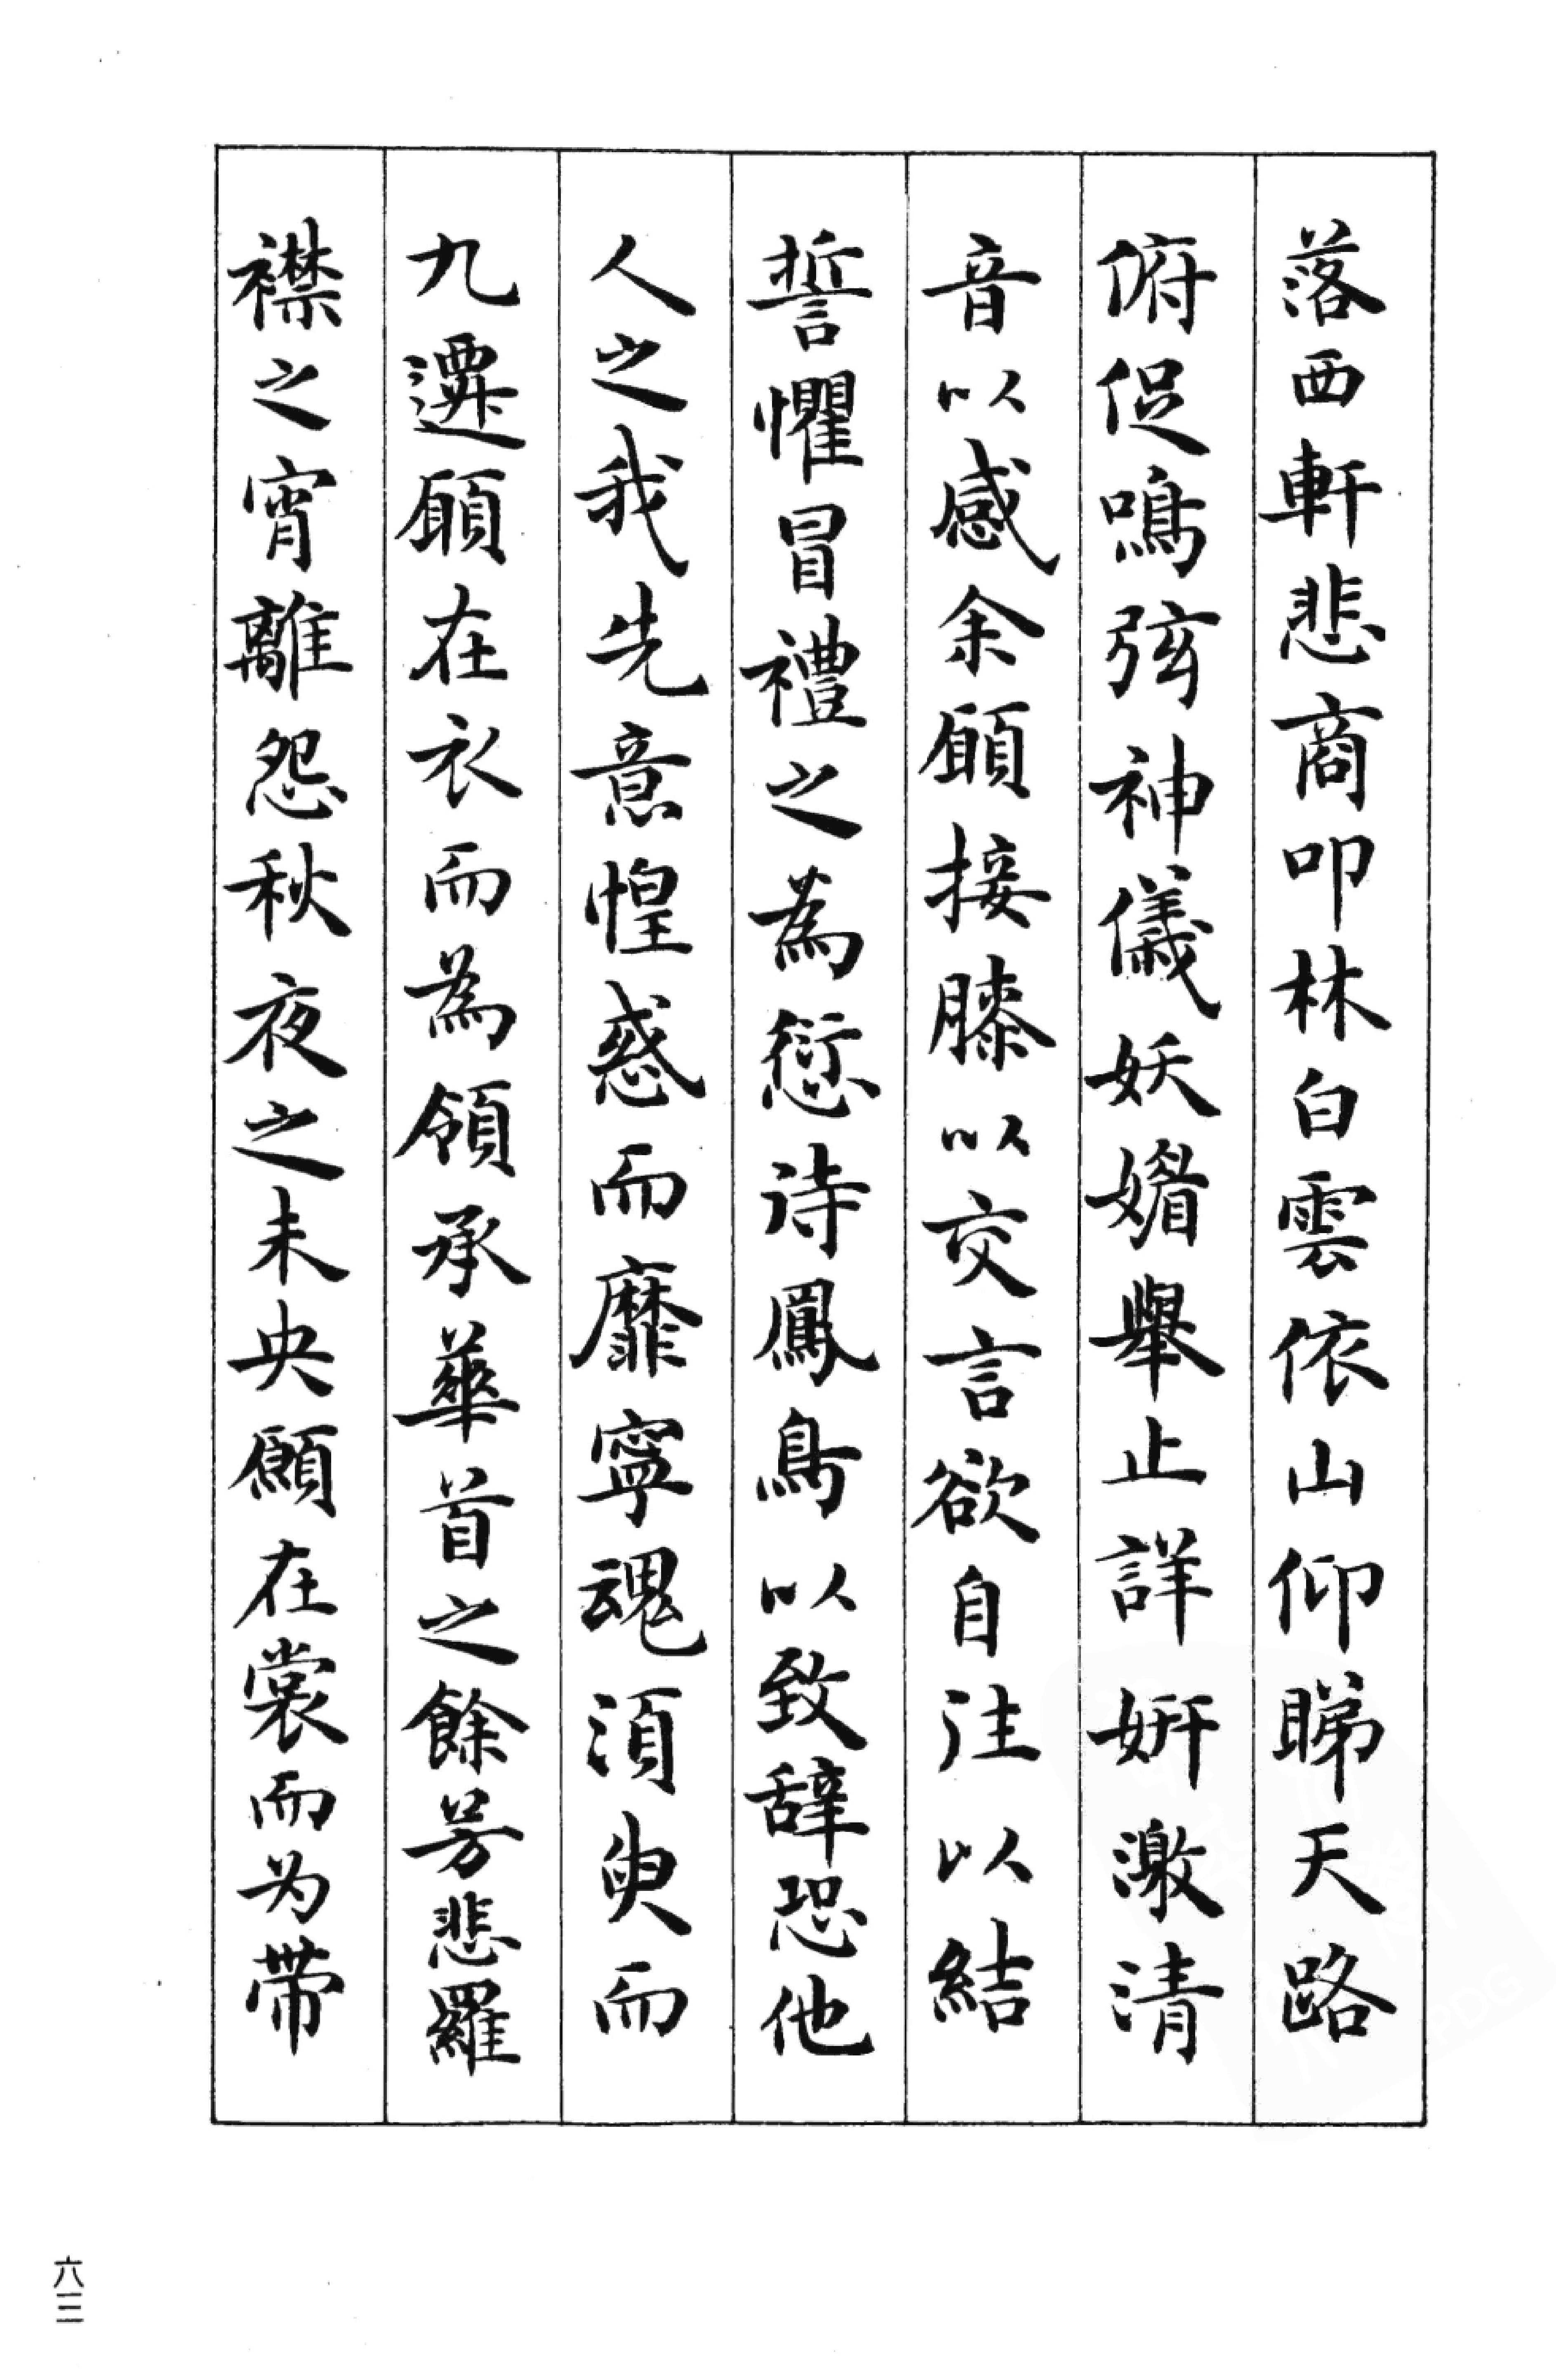 落西軒悲商叩林白雲依山仰睇天路
俯促鳴弦神儀妖媚舉止詳妍激清
音以感余願接膝以交言欲自往以結
誓懼冒禮之為愆待鳳鳥以致辞恐他
人之我先意惶惑而靡寧魂須臾而
九遷願在衣而為領承華首之餘芳悲羅
襟之宵離怨秋夜之未央願在裳而为帶
六三